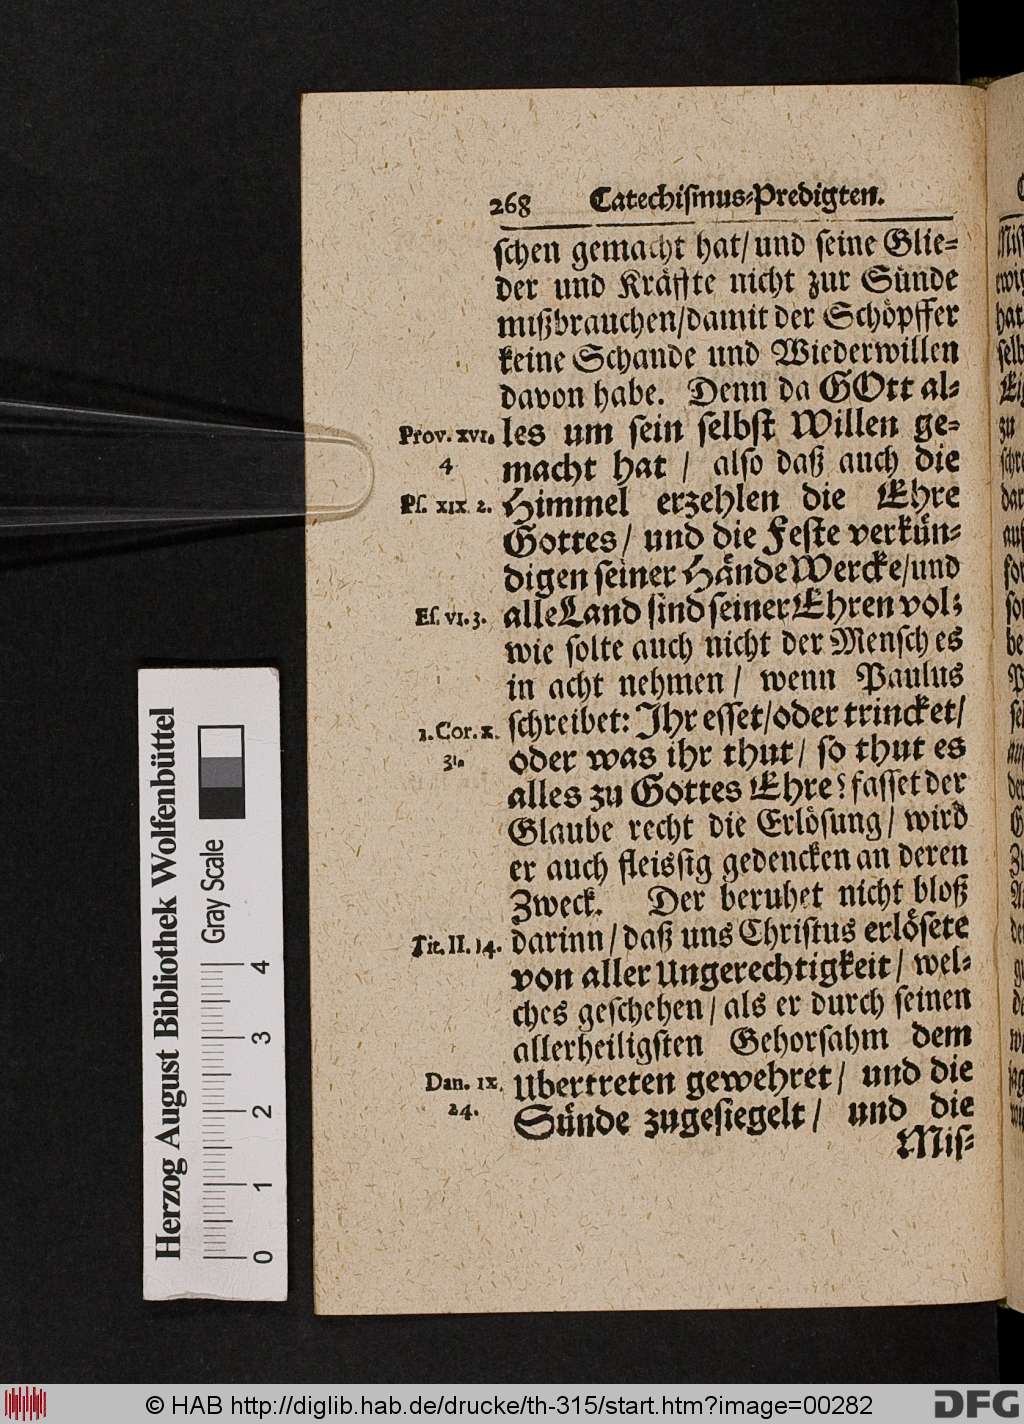 268 Catechiſmus-Predigten.
ſchen gemacht hat/ und ſeine Glie-
der und Kräffte nicht zur Sünde
mißbrauchen/damit der Schöpffer
keine Schande und Wiederwillen
davon habe. Denn da GOtt al-
Prov. XVI. les um ſein ſelbſt Willen ge-
4 macht hat / alſo daß auch die
Pſ. XIX 2. Himmel erzehlen die Ehre
Gottes/ und die Feſte verkün-
digen ſeiner Hände Wercke/und
Eſ. VI. 3. alle Land ſind ſeiner Ehren vol;
wie ſolte auch nicht der Menſch es
in acht nehmen/ wenn Paulus
1. Cor. X. ſchreibet: Ihr eſſet/oder trincket/
31. oder was ihr thut/ ſo thut es
alles zu Gottes Ehre? faſſet der
Glaube recht die Erlöſung/ wird
er auch fleiſſig gedencken an deren
Zweck. Der beruhet nicht bloß
Tit. II. 14. darinn/ daß uns Chriſtus erlöſete
von aller Ungerechtigkeit/ wel-
ches geſchehen/ als er durch ſeinen
allerheiligſten Gehorſahm dem
Dan. IX. Ubertreten gewehret/ und die
24. Sünde zugeſiegelt/ und die
Miſ-
Herzog August Bibliothek Wolfenbüttel
Gray Scale
0 1 2 3 4
© HAB http://diglib.hab.de/drucke/th-315/start.htm?image=00282
DFG